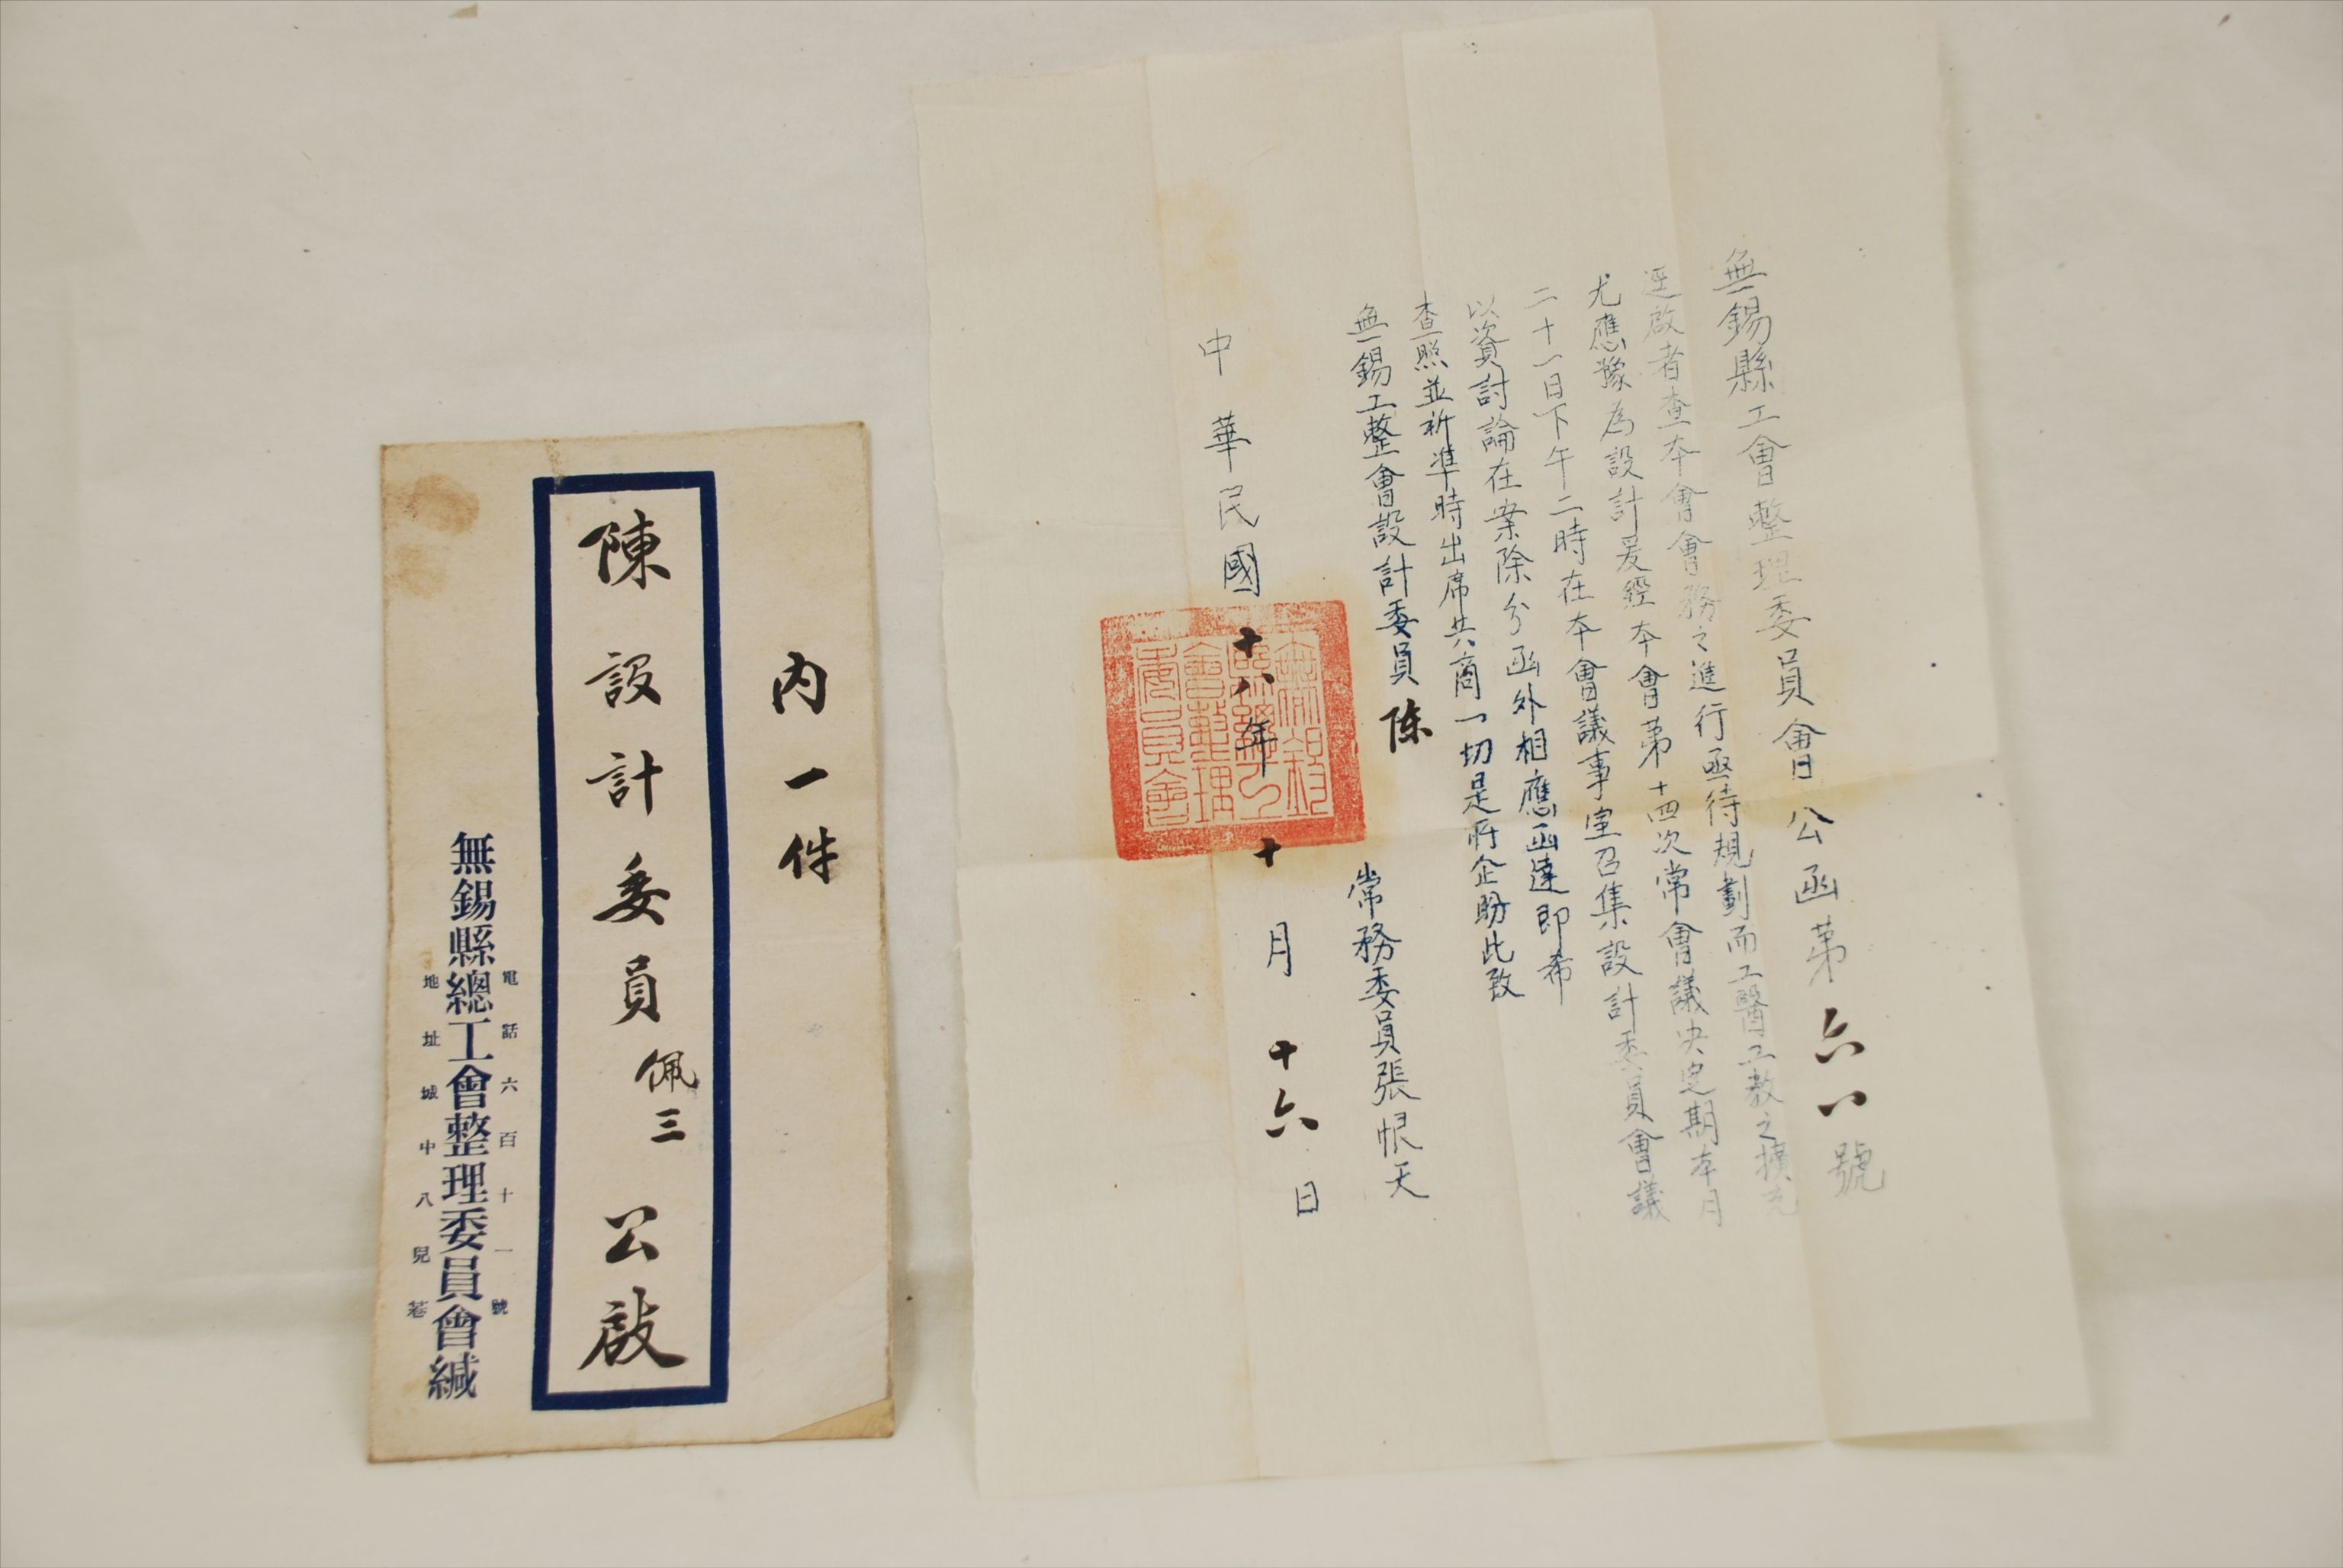 內一件
陳設計委員佩三 公啟
電話六百十一號
無錫縣總工會整理委員會緘
地址城中八兒巷
無錫縣工會整理委員會公函第六八號
逕啟者查本會會務之進行亟待規劃而工醫工教之擴充
尤應豫為設計爰經本會第十四次常會議決定期本月
二十一日下午二時在本會議事室召集設計委員會議
以資討論在案除分函外相應函達即希
查照並祈準時出席共商一切是所企盼此致
無錫工整會設計委員陳
常務委員張恨天
中華民國十八年十月十六日
無錫縣總工會整理委員會